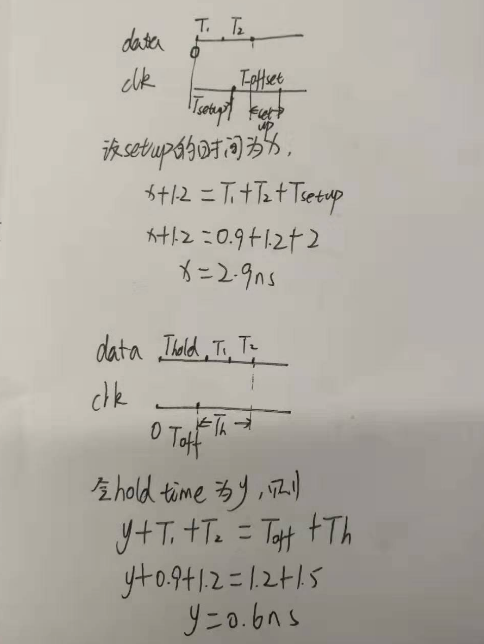 T₁ T₂
data
0
clk
Toffset
Tsetup
set
up
设setup的时间为x,
x+1.2=T₁+T₂+Tsetup
x+1.2=0.9+1.2+2
x=2.9ns
data Thold T₁ T₂
clk
0 Toff Th
令hold time为y,则
y+T₁+T₂=Toff+Th
y+0.9+1.2=1.2+1.5
y=0.6ns